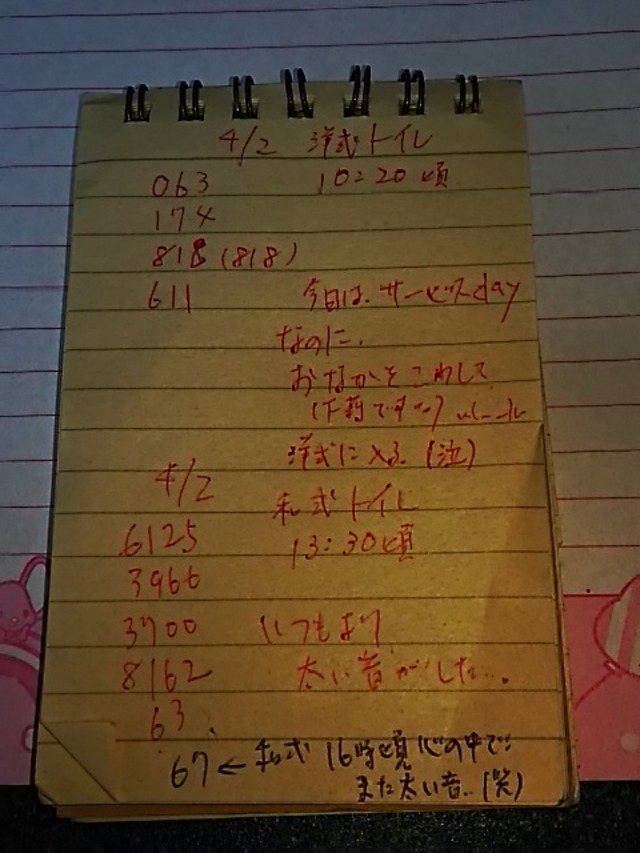 4/2 洋式トイレ
063 10:20頃
174
818 (818)
611 今日は、サービスday
なのに、
おなかをこわして
(下莉です…)
洋式に入る。(泣)
4/2 和式トイレ
6125 13:30頃
3966
3700 いつもより
8162 太い音がした…。
63
67 ← 和式 16時頃 心の中で
また太い音..(笑)